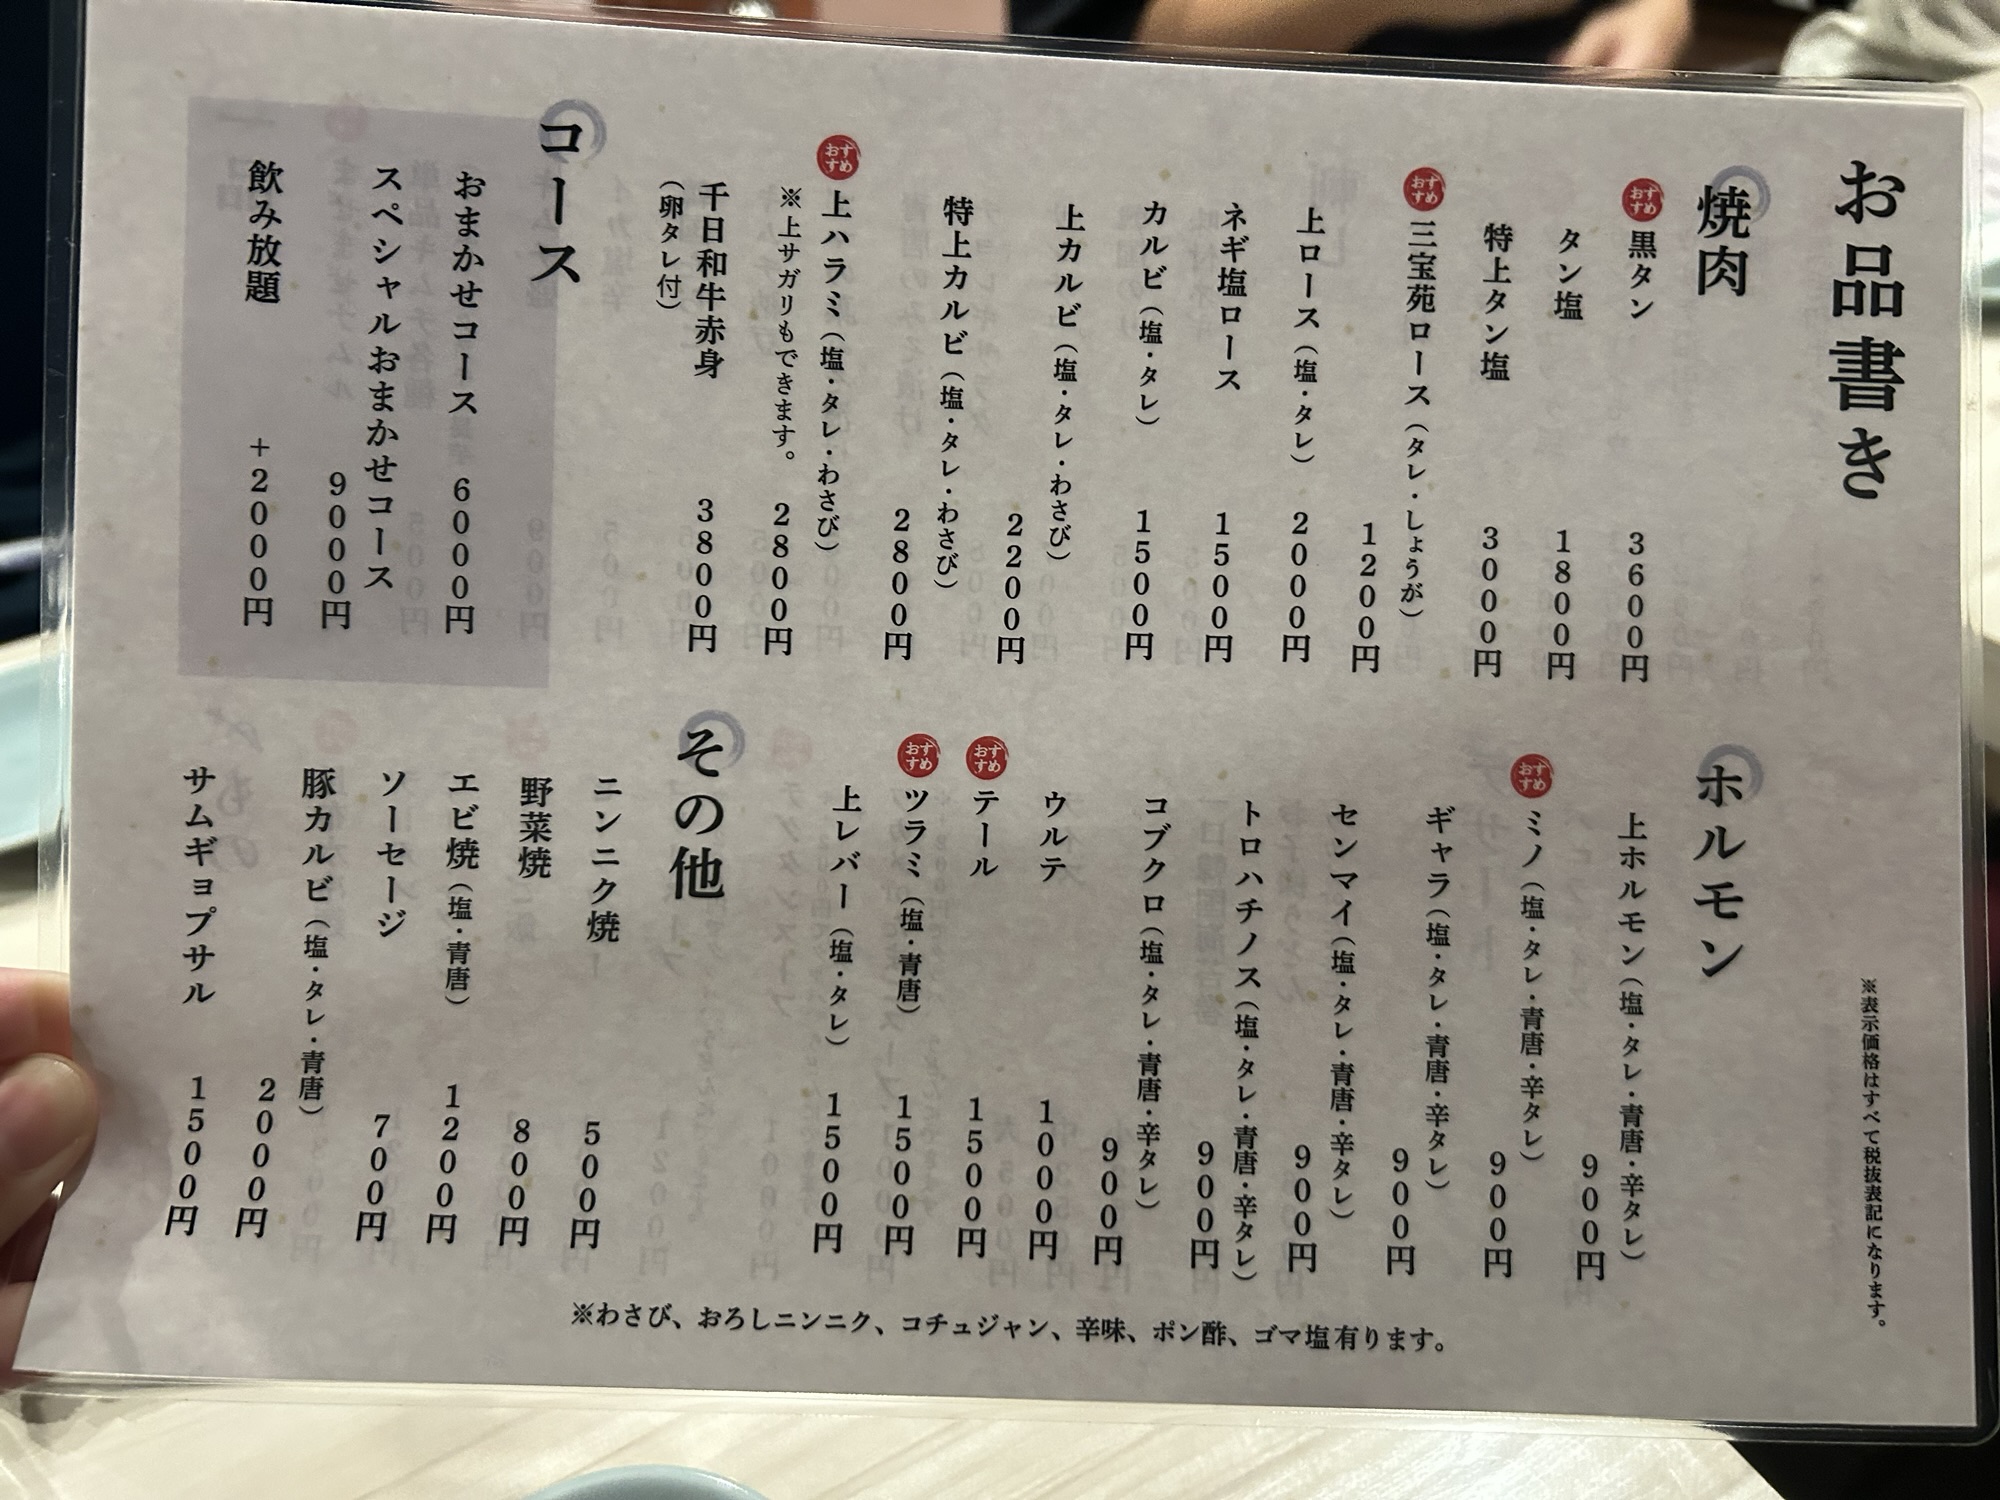 お品書き
※表示価格はすべて税抜表記になります。
焼肉
おすすめ
黒タン 3600円
タン塩 1800円
特上タン塩 3000円
おすすめ
三宝苑ロース（タレ・しょうが） 1200円
上ロース（塩・タレ） 2000円
ネギ塩ロース 1500円
カルビ（塩・タレ） 1500円
上カルビ（塩・タレ・わさび） 2200円
特上カルビ（塩・タレ・わさび） 2800円
おすすめ
上ハラミ（塩・タレ・わさび） 2800円
※上サガリもできます。
千日和牛赤身 3800円
（卵タレ付）
コース
おまかせコース 6000円
スペシャルおまかせコース 9000円
飲み放題 +2000円
ホルモン
上ホルモン（塩・タレ・青唐・辛タレ） 900円
おすすめ
ミノ（塩・タレ・青唐・辛タレ） 900円
ギャラ（塩・タレ・青唐・辛タレ） 900円
センマイ（塩・タレ・青唐・辛タレ） 900円
トロハチノス（塩・タレ・青唐・辛タレ） 900円
コブクロ（塩・タレ・青唐・辛タレ） 900円
ウルテ 1000円
おすすめ
テール 1500円
おすすめ
ツラミ（塩・青唐） 1500円
上レバー（塩・タレ） 1500円
その他
ニンニク焼 500円
野菜焼 800円
エビ焼（塩・青唐） 1200円
ソーセージ 700円
豚カルビ（塩・タレ・青唐） 2000円
サムギョプサル 1500円
※わさび、おろしニンニク、コチュジャン、辛味、ポン酢、ゴマ塩有ります。